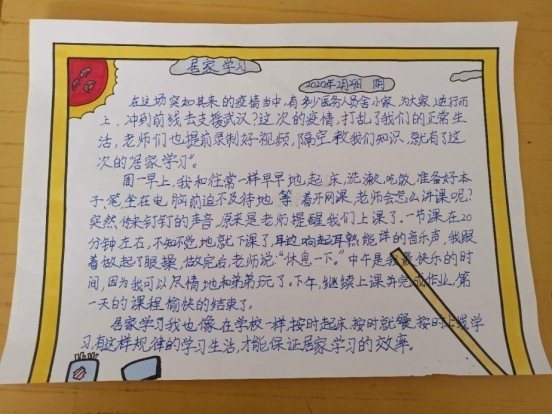 居家学习
2020年2月24日 阴
在这场突如其来的疫情当中,有多少医务人员舍小家,为大家,逆行而
上,冲到前线去支援武汉?这次的疫情,打乱了我们的正常生
活,老师们也提前录制好视频,隔空教我们知识,就有了这
次的"居家学习"。
周一早上,我和往常一样早早地起床,洗漱,吃饭,准备好本
子、笔,坐在电脑前迫不及待地等着开网课,老师会怎么讲课呢?
突然,传来钉钉的声音,原来是老师提醒我们上课了。一节课在20
分钟左右,不知不觉地就下课了,耳边响起耳熟能详的音乐声,我跟
着做起了眼操,做完后,老师说:"休息一下。"中午是我最快乐的时
间,因为我可以尽情地和弟弟玩了。下午,继续上课并完成作业,第
一天的课程愉快的结束了。
居家学习我也像在学校一样,按时起床,按时就餐,按时上线学
习,有这样规律的学习生活,才能保证居家学习的效率。